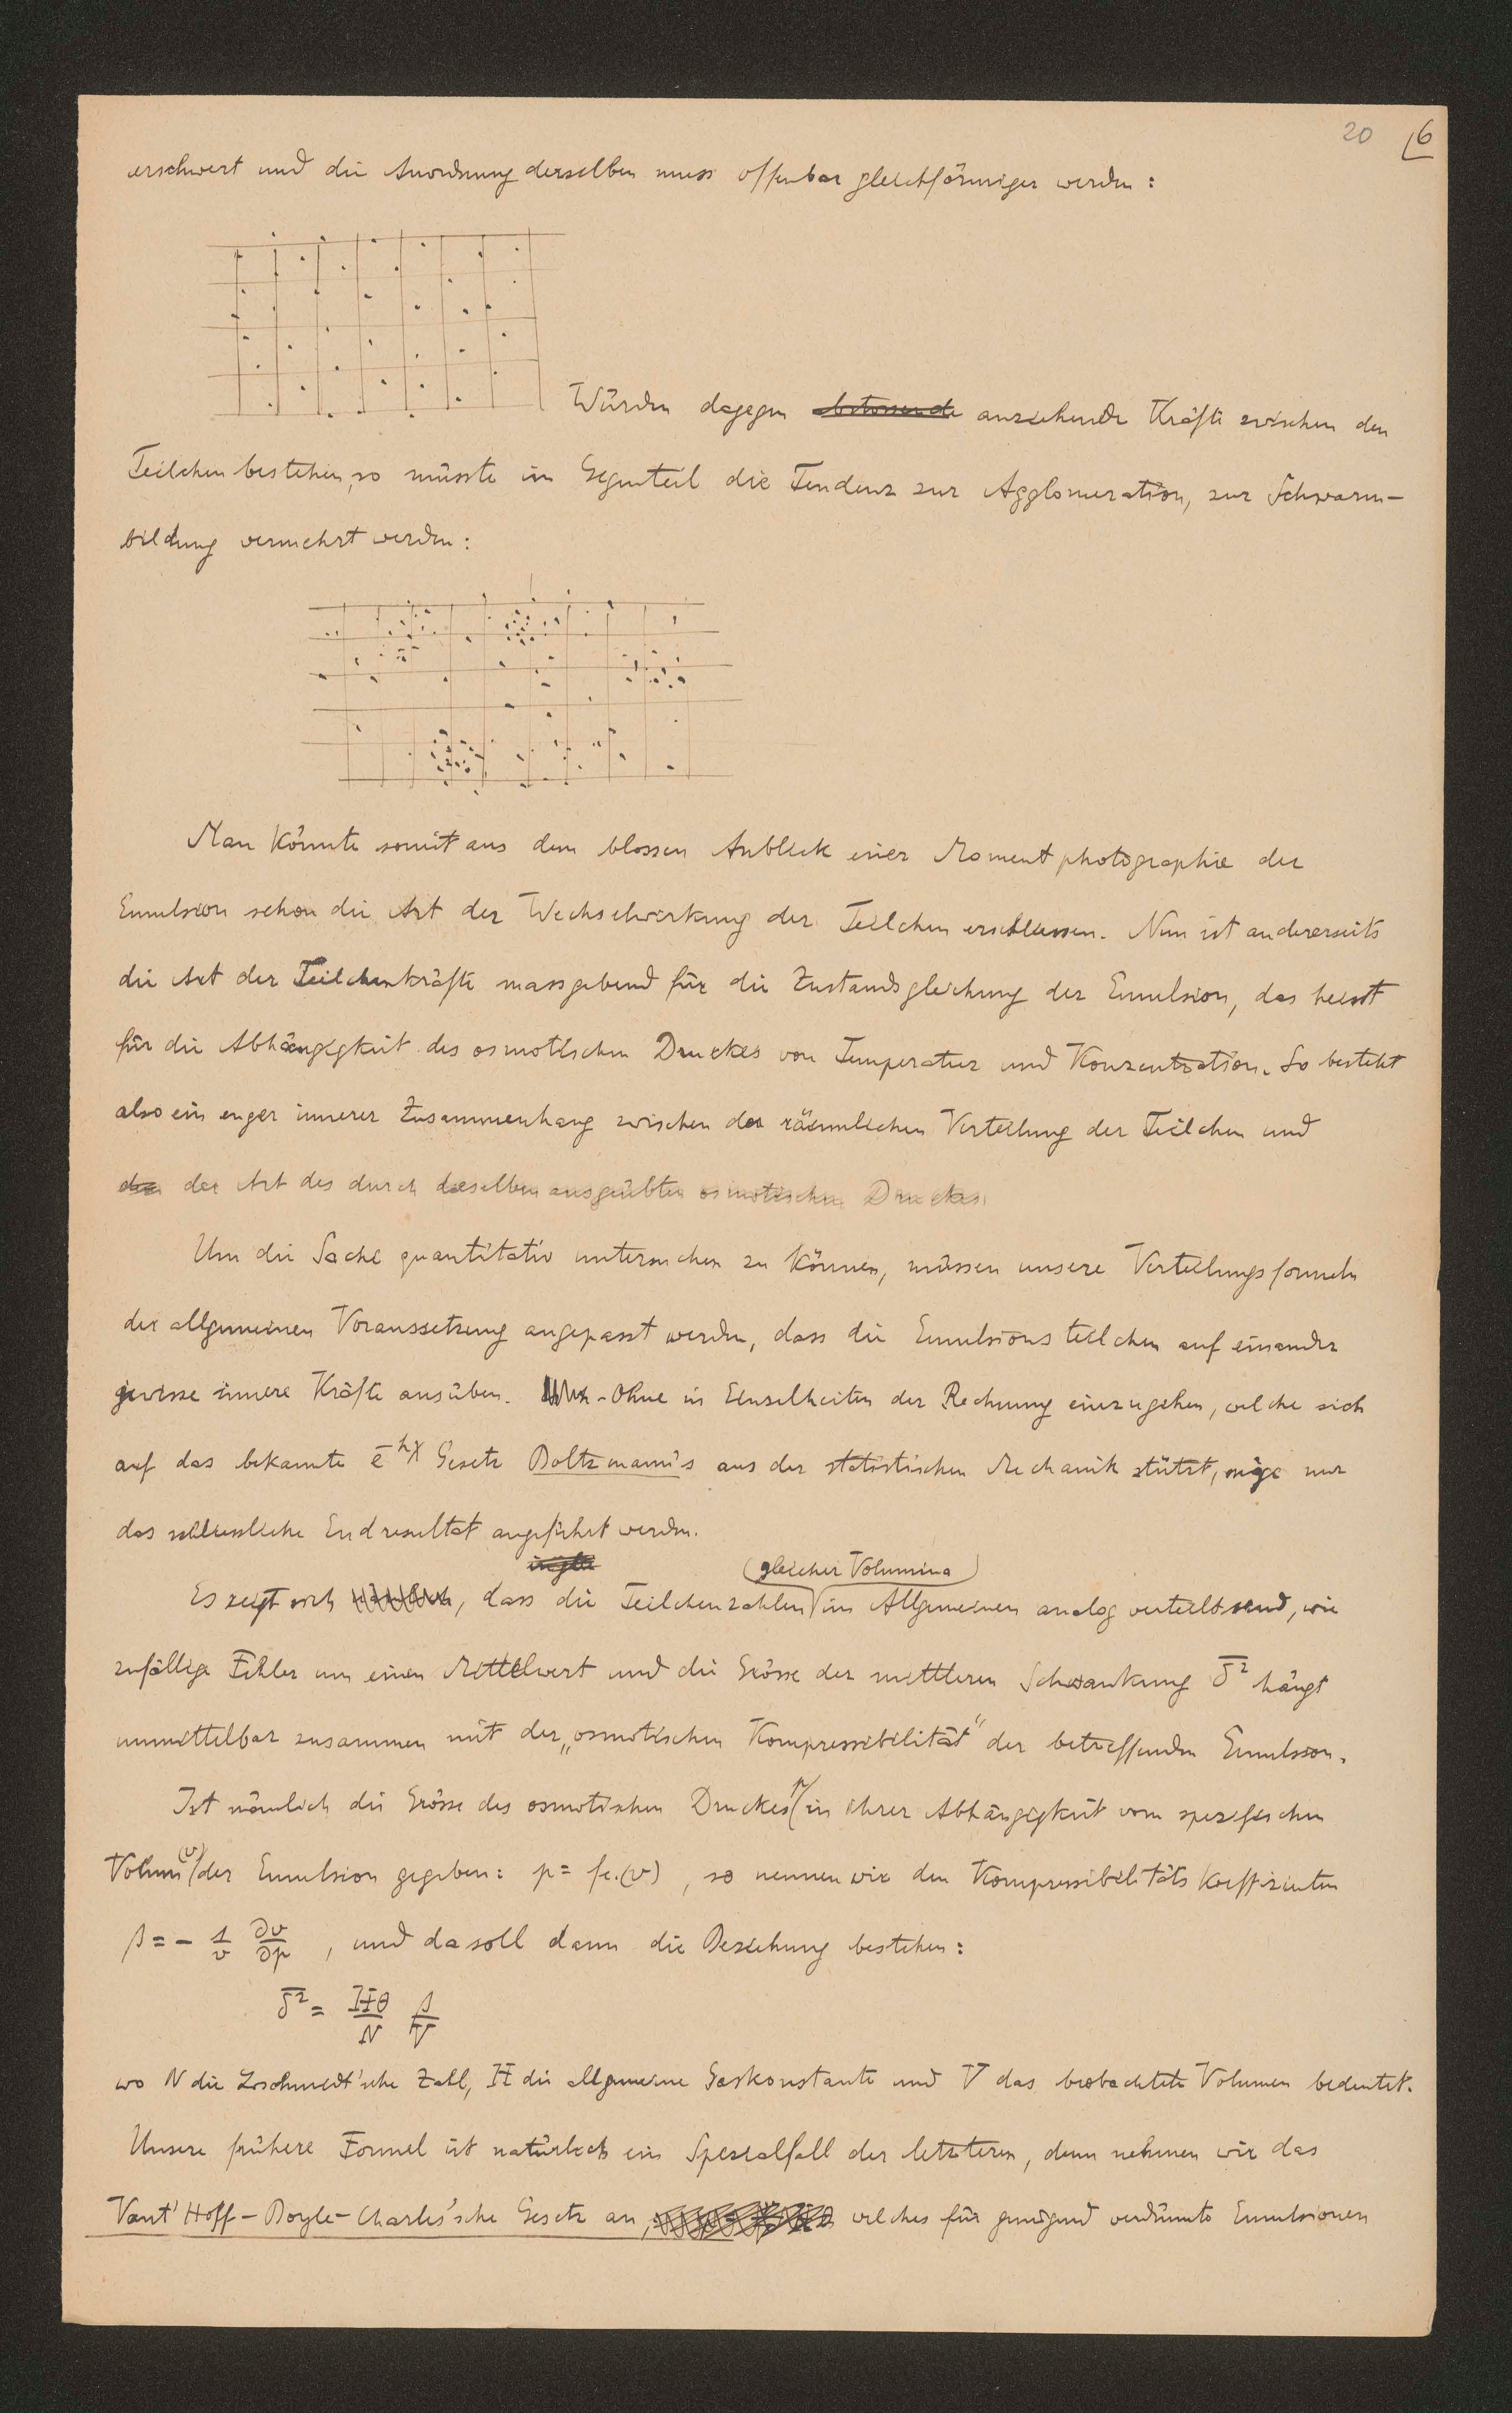 20 6
erschwert und die Anordnung derselben muss offenbar gleichförmiger werden:
Würden dagegen abstossende anziehende Kräfte zwischen den
Teilchen bestehen, so müsste im Gegenteil die Tendenz zur Agglomeration, zur Schwarm-
bildung vermehrt werden:
Man könnte somit aus dem blossen Anblick einer Momentphotographie der
Emulsion schon die Art der Wechselwirkung der Teilchen erschliessen. Nun ist andererseits
die Art der Teilchenkräfte massgebend für die Zustandsgleichung der Emulsion, das heisst
für die Abhängigkeit des osmotischen Druckes von Temperatur und Konzentration. So besteht
also ein enger innerer Zusammenhang zwischen der räumlichen Verteilung der Teilchen und
der Art des durch dieselben ausgeübten osmotischen Druckes
Um die Sache quantitativ untersuchen zu können, müssen unsere Verteilungsformeln
der allgemeinen Voraussetzung angepasst werden, dass die Emulsionsteilchen auf einander
gewisse innere Kräfte ausüben. - Ohne in Einzelheiten der Rechnung einzugehen, welche sich
auf das bekannte e^-hχ Gesetz Boltzmann's aus der statistischen Mechanik stützt, möge nur
das schliessliche Endresultat angeführt werden.
gleicher Volumina
Es zeigt sich nämlich, dass die Teilchenzahlen im Allgemeinen analog verteilt sind, wie
zufällige Fehler um einen Mittelwert und die Grösse der mittleren Schwankung δ̅² hängt
unmittelbar zusammen mit der „osmotischen Kompressibilität" der betreffenden Emulsion.
Ist nämlich die Grösse des osmotischen Druckes p in ihrer Abhängigkeit vom spezifischen
Volum (v) der Emulsion gegeben: p = fc.(v), so nennen wir den Kompressibilitätskoeffizienten
β = - 1/v ∂v/∂p , und da soll dann die Beziehung bestehen:
δ̅² = Hθ/N β/V
wo N die Loschmidt'sche Zahl, H die allgemeine Gaskonstante und V das beobachtete Volumen bedeutet.
Unsere frühere Formel ist natürlich ein Spezialfall der letzteren, denn nehmen wir das
Vant'Hoff-Boyle-Charles'sche Gesetz an, welches für genügend verdünnte Emulsionen